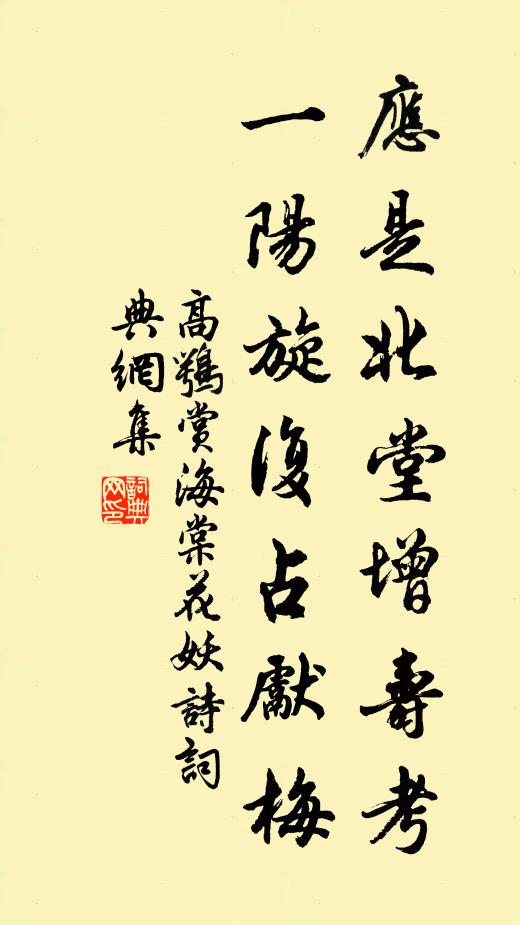 應是北堂增壽考
一陽旋復占獻梅
高鶚賞海棠花妖詩詞
典網集
詞典
网印